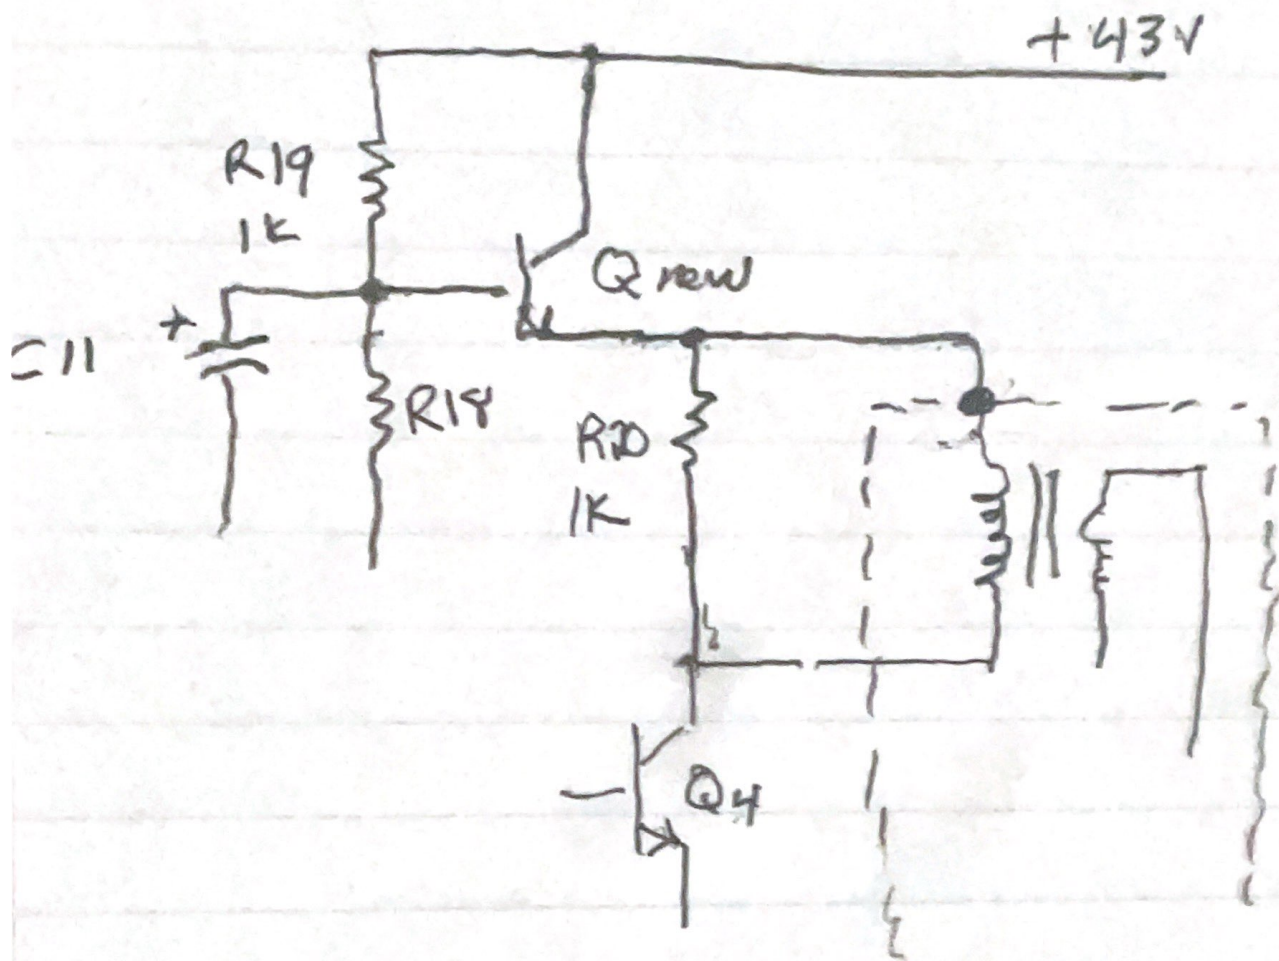 +43V
R19
1K
Qnew
+
C11
R18
R20
1K
Q4